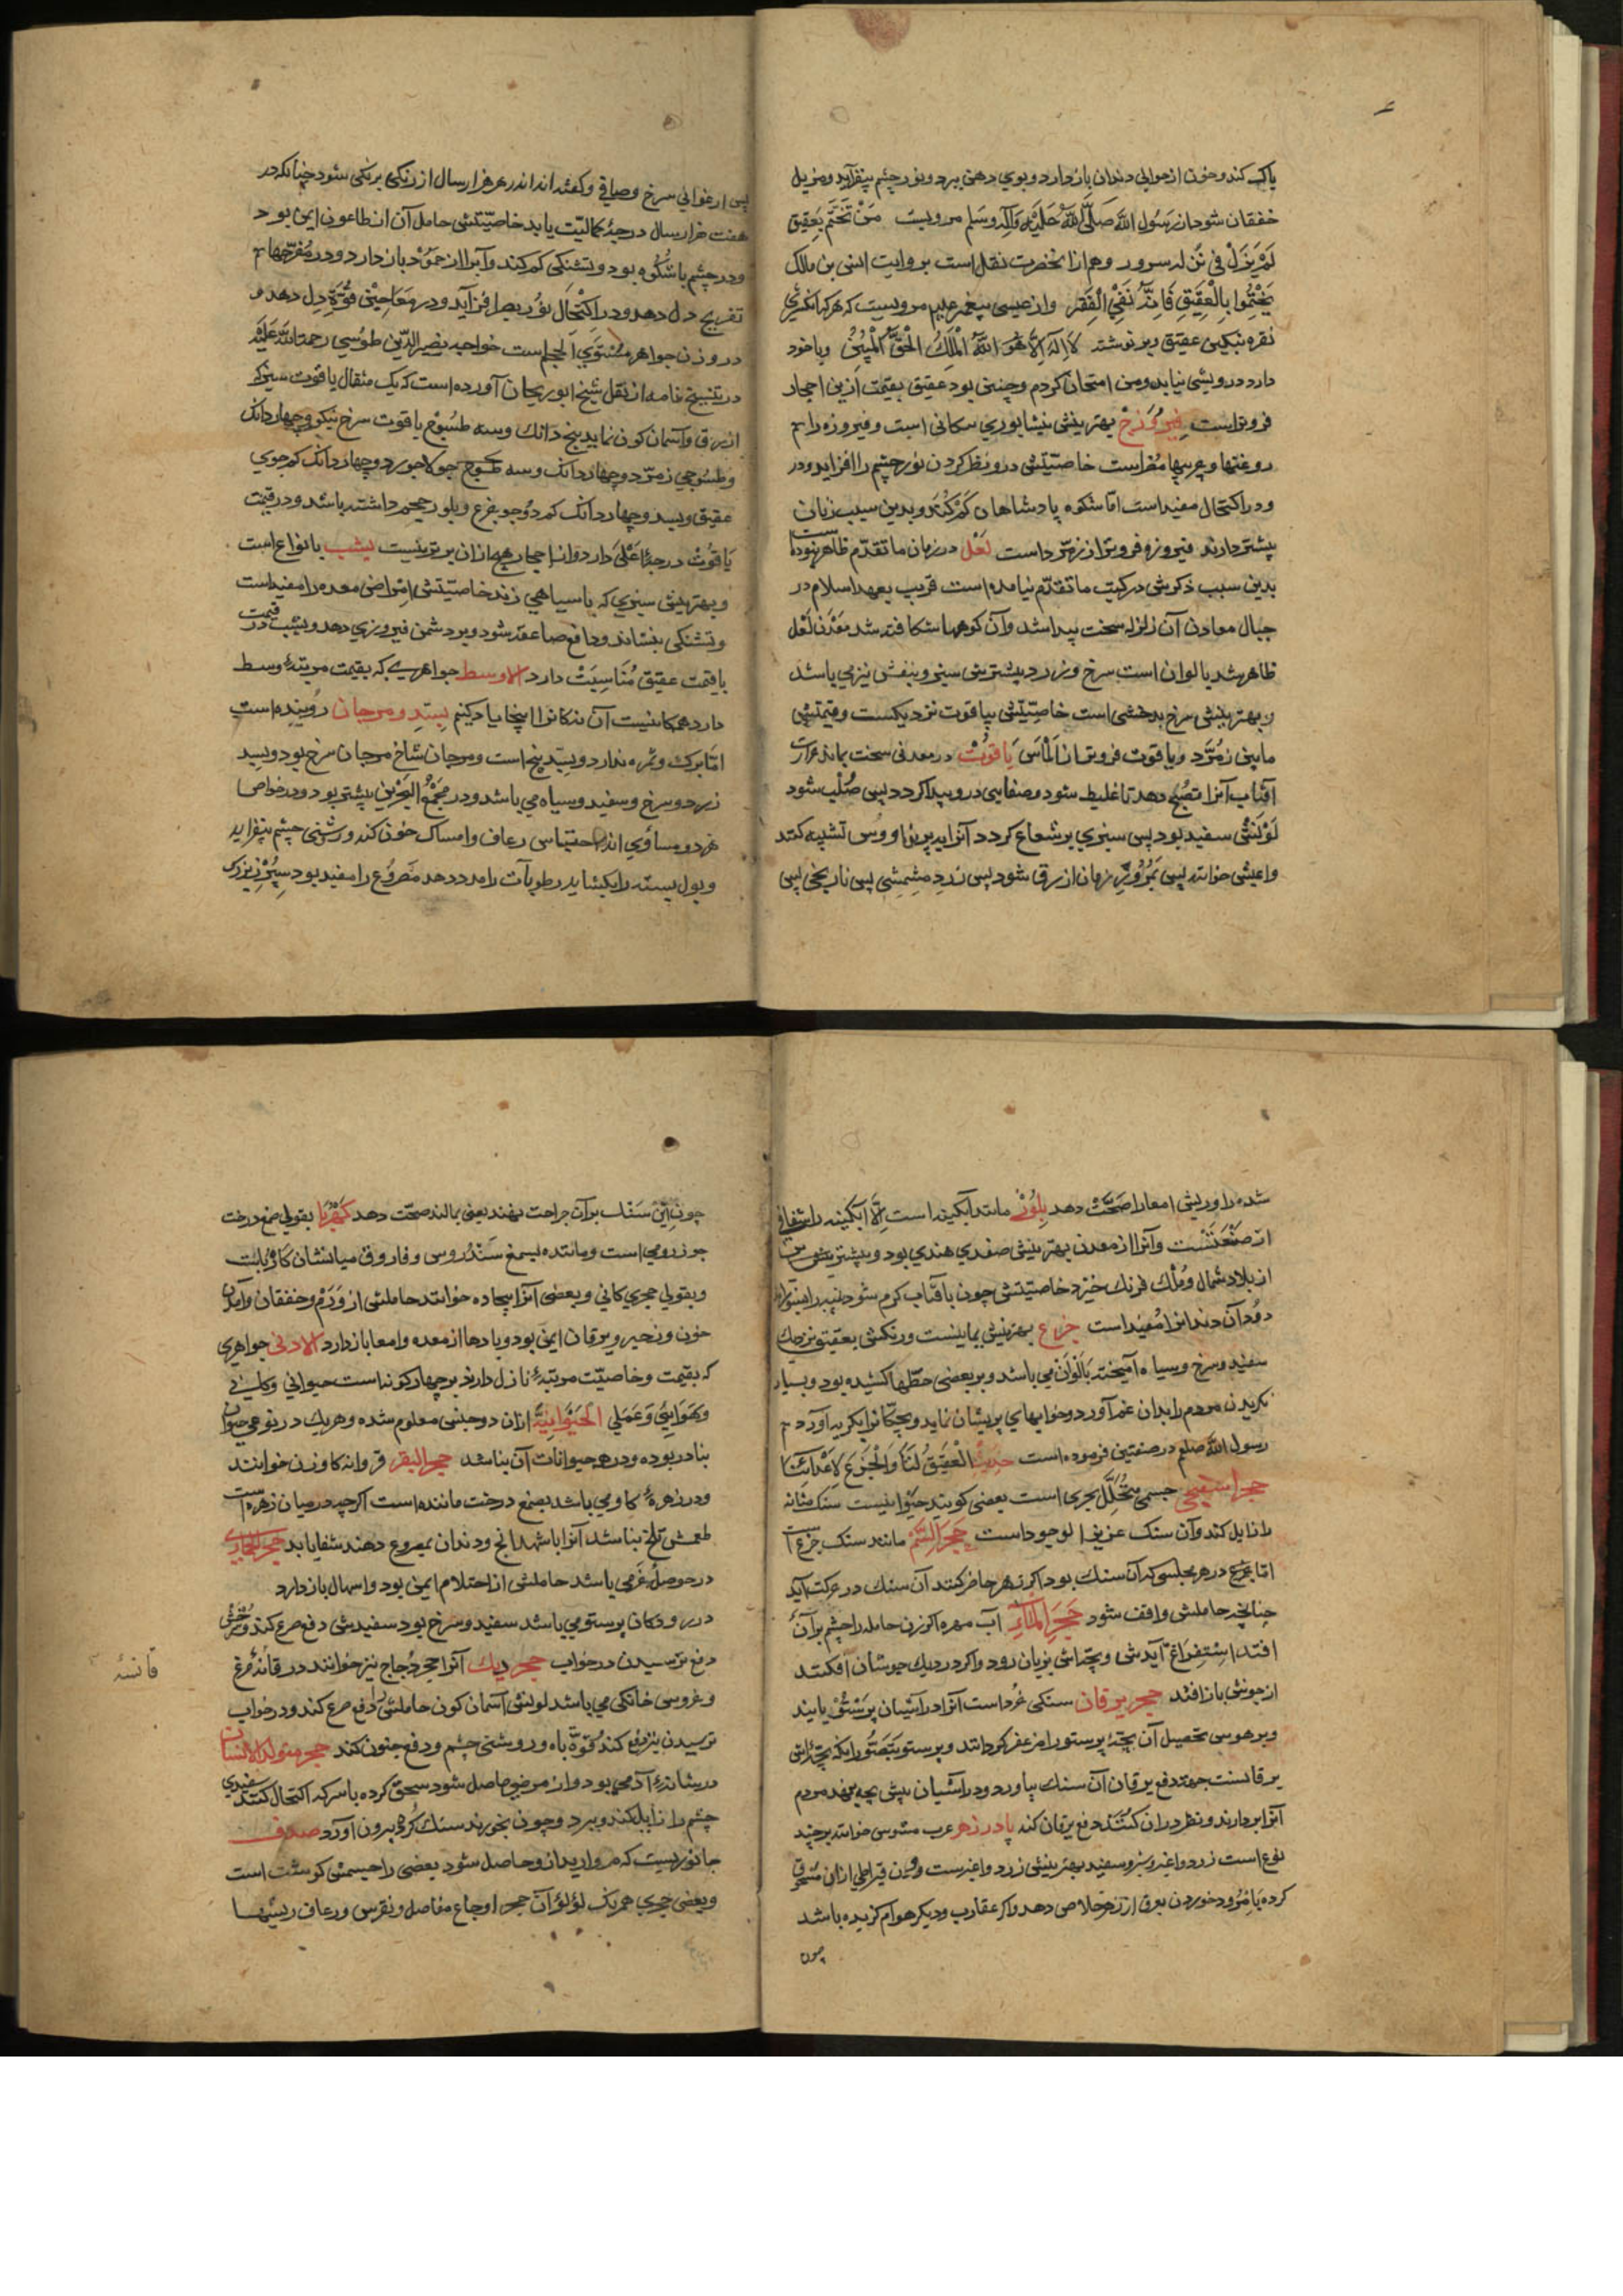 پاک کند و خون از حوالی دندان باز دارد و بوی دهن ببرد و نور چشم بیفزاید و مزیل
خفقان شود از رسول الله صلی الله علیه وآله وسلم مرویست من تختم بعقیق
لم یزل فی سرور وهم از انحضرت نقل است بروایت انس بن مالک
تختموا بالعقیق فانه ینفی الفقر واز عیسی پیغمبر علیه مرویست که هرکه انکشتری
نقره نبکین عقیق وبر نوشته لا اله الا هو الله الملک الحق المبین وبا خود
دارد درویشی نیابد ومن امتحان کردم وچنین بود عقیق بقیمت ازین احجار
فروتراست فیروزج بهترینش نیشابوری سکانی است وفیروزه را هم
روغنها وچربیها مضراست خاصیتش درو نظر کردن نور چشم را افزاید ودر
ودر اکتحال مفیداست اما شکوه پادشاهان کم کند وبدین سبب زنان
بیشتر دارند فیروزه فروتر از زمرداست لعل در زمان ما تقدم ظاهر نبوده است
بدین سبب ذکرش در کتب ما تقدم نیامده است قریب بعهد اسلام در
جبال معادن آن زلزله سخت پیدا شد وآن کوهها شکافته شد معدن لعل
ظاهر شد بالوان است سرخ وزرد بیشترین سبز وبنفش نیز می باشد
وبهترینش سرخ بدخشی است خاصیتش بیاقوت نزدیکست وقیمتش
مابین زمرد ویاقوت فروتر از الماس یاقوت در معدنی سخت بماند حرارت
آفتاب آنرا نضج دهد تا غلیظ شود وصفایی درو پیدا کردد پس صلب شود
لونش سفید بود پس سبزی پر شعاع کردد آنرا بپر طاووس تشبیه کنند
واعیش خوانند پس بمرور زمان ازرق شود پس زرد مشمشی پس نارنجی پس
پس ارغوانی سرخ وصافی وکفته اند اندر هر هزار سال از رنکی برنکی شود چنانکه در
هفت هزار سال درجه کمالیت یابد خاصیتش حامل آن از طاعون ایمن بود
ودر چشم با شکوه بود وتشنکی کم کند وآب را از جمود باز دارد ودر مفرحها هم
تفریح دل دهد ودر اکتحال نور بصر افزاید ودر معاجین قوت دل دهد و
در وزن جواهر مستوی الحجم است خواجه نصیر الدین طوسی رحمة الله علیه
در تنسخ نامه از نقل شیخ ابو ریحان آورده است که یک مثقال یاقوت
ازرق وآسمان کون نماید پنج دانک وسه طسوج یاقوت سرخ نیکو وچهار دانک
وطسوجی زمرد وچهار دانک وسه طسوج جو لاجورد وچهار دانک کم جوی
عقیق وبسد وچهار دانک کم دو جو جزع وبلور حجم داشته باشد ودر قیمت
یاقوت درجه اعلی دارد واز احجار هیچ ازان برتر نیست یشب بانواع است
وبهترینش سبزی که با سیاهی زند خاصیتش امراض معده را مفیداست
وتشنکی بنشاند ودافع صاعقه شود وبر دشمن فیروزی دهد ویشب در قیمت
باقیمت عقیق مناسبت دارد الاوسط جواهری که بقیمت مرتبه وسط
دارد همکانیست آن ندکانرا اینجا یاد کنیم بسد ومرجان روینده است
اما برک وثمره ندارد وبسد بیخ است ومرجان شاخ مرجان سرخ بود وبسد
زرد وسرخ وسفید وسیاه می باشد ودر مجمع البحرین بیشتر بود ودر خواص
هردو مساوی اند احتباس رعاف وامساک خون کند وروشنی چشم بیفزاید
وبول بسته را بکشاید رطوبات را مدد دهد مصروع را مفید بود سپرز بزرک
شده را وریش امعا را صحت دهد بلور مانند آبکینه است الا آبکینه را شفافی
از صنعتست وآنرا از معدن بهترینش صغدی هندی بود وبیشترینش
از بلاد شمال وملک فرنک خیزد خاصیتش چون بآفتاب کرم شود پنبه را بسوزاند
دود آن دندانرا مفیداست جزع بهترینش یمانیست ورنکش بعقیق نزدیک
سفید وسرخ وسیاه آمیخته بالوان می باشد وبر بعضی خطها کشیده بود وبسیار
نکریدن مردم را بدان غم آورد وخوابهای پریشان نماید وبچکانرا بکریه آورد
رسول الله صلعم در صفتین فرموده است حدیث العقیق لنا والجزع لاعدائنا
حجر اسفنجی جسمی متخلل بحری است بعضی کویند حیوانیست سنک مثانه
را زایل کند وآن سنک عزیز الوجوداست حجر السم مانند سنک جزع است
اما جزع در هر مجلسی که آن سنک بود اکر زهر حاضر کنند آن سنک در حرکت آید
چنانچه حاملش واقف شود حجر الماء آب مهره اکر زن حامله را چشم بر آن
افتد استفراغ آیدش وبچه اش بزیان رود واکر در دیک جوشان افکنند
از جوش باز افتد حجر یرقان سنکی خرداست آنرا در آشیان پرستو یابند
وبر هوس تحصیل آن بچه پرستو را مزعفر کردانند وپرستو بتصور انکه بچه اش
یرقانست جهت دفع یرقان آن سنک بیاورد ودر آشیان پیش بچه نهد مردم
آنرا بردارند ونظر دران کنند دفع یرقان کند پادزهر عرب متوسی خوانند بر چند
نوع است زرد واغبر وسبز وسفید بهترینش زرد واغبرست وزن قیراطی ازان مسحوق
کرده بامزود خوردن بعرق از زهر خلاص دهد واکر عقارب ودیکر هوام کزیده باشد
چون
چون این سنک بر آن جراحت نهند یعنی بمالند صحت دهد کهربا بقولی صمغ درخت
جوز رومی است ومانند بصمغ سندروس وفاروق میانشان کاه ربایست
وبقولی حجری کانی وبعضی آنرا بیجاده خوانند حاملش از ورم وخفقان وآمدن
خون وزحیر ویرقان ایمن بود وبادها از معده وامعا باز دارد الادنی جواهری
که بقیمت وخاصیت مرتبه نازل دارند بر چهار کونه است حیوانی وکانی
وهوایی وعملی الحیوانیة ازان دو جنس معلوم شده وهر یک در نوعی حیوان
بنادر بوده ودر همه حیوانات آن نباشد حجر البقر فروانه کاوزن خوانند
ودر زهره کاو می باشد بصمغ درخت ماننده است اکرچه در میان زهره است
طعمش تلخ نباشد آنرا باشهدانج ودندان بمصروع دهند شفا یابد حجر الحباری
در حوصل غرمی باشد حاملش از احتلام ایمن بود واسهال باز دارد
در رودکان پرستو می باشد سفید وسرخ بود سفیدش دفع صرع کند وسرخش
دفع ترسیدن در خواب حجر دیک آنرا حجر دجاج نیز خوانند در قانه مرغ
وخروس خانکی می باشد لونش آسمان کون حاملش را دفع صرع کند ودر خواب
ترسیدن نیز دفع کند وقوة باه وروشنی چشم ودفع جنون کند حجر متولد الانسان
در مثانه آدمی بود واز مرض حاصل شود سحق کرده با سرکه اکتحال کنند سفیدی
چشم را زایل کند وببرد وچون بخورند سنک کرده بیرون آورد صدف
جانوریست که مروارید ازو حاصل شود بعضی را جسمش کوشت است
وبعضی حجری همرنک لؤلؤ آن حجر اوجاع مفاصل ونقرس ورعاف ریشها
قانسه